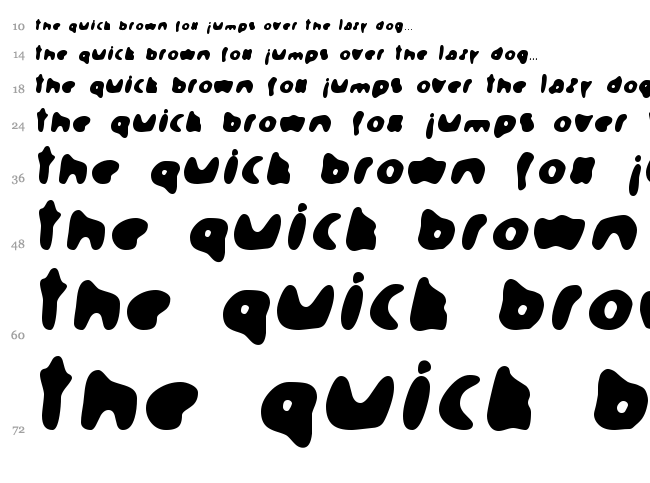 10 the quick brown fox jumps over the lazy dog...
14 the quick brown fox jumps over the lazy dog...
18 the quick brown fox jumps over the lazy dog
24 the quick brown fox jumps over
36 the quick brown fox j
48 the quick brown
60 the quick brow
72 the quick b